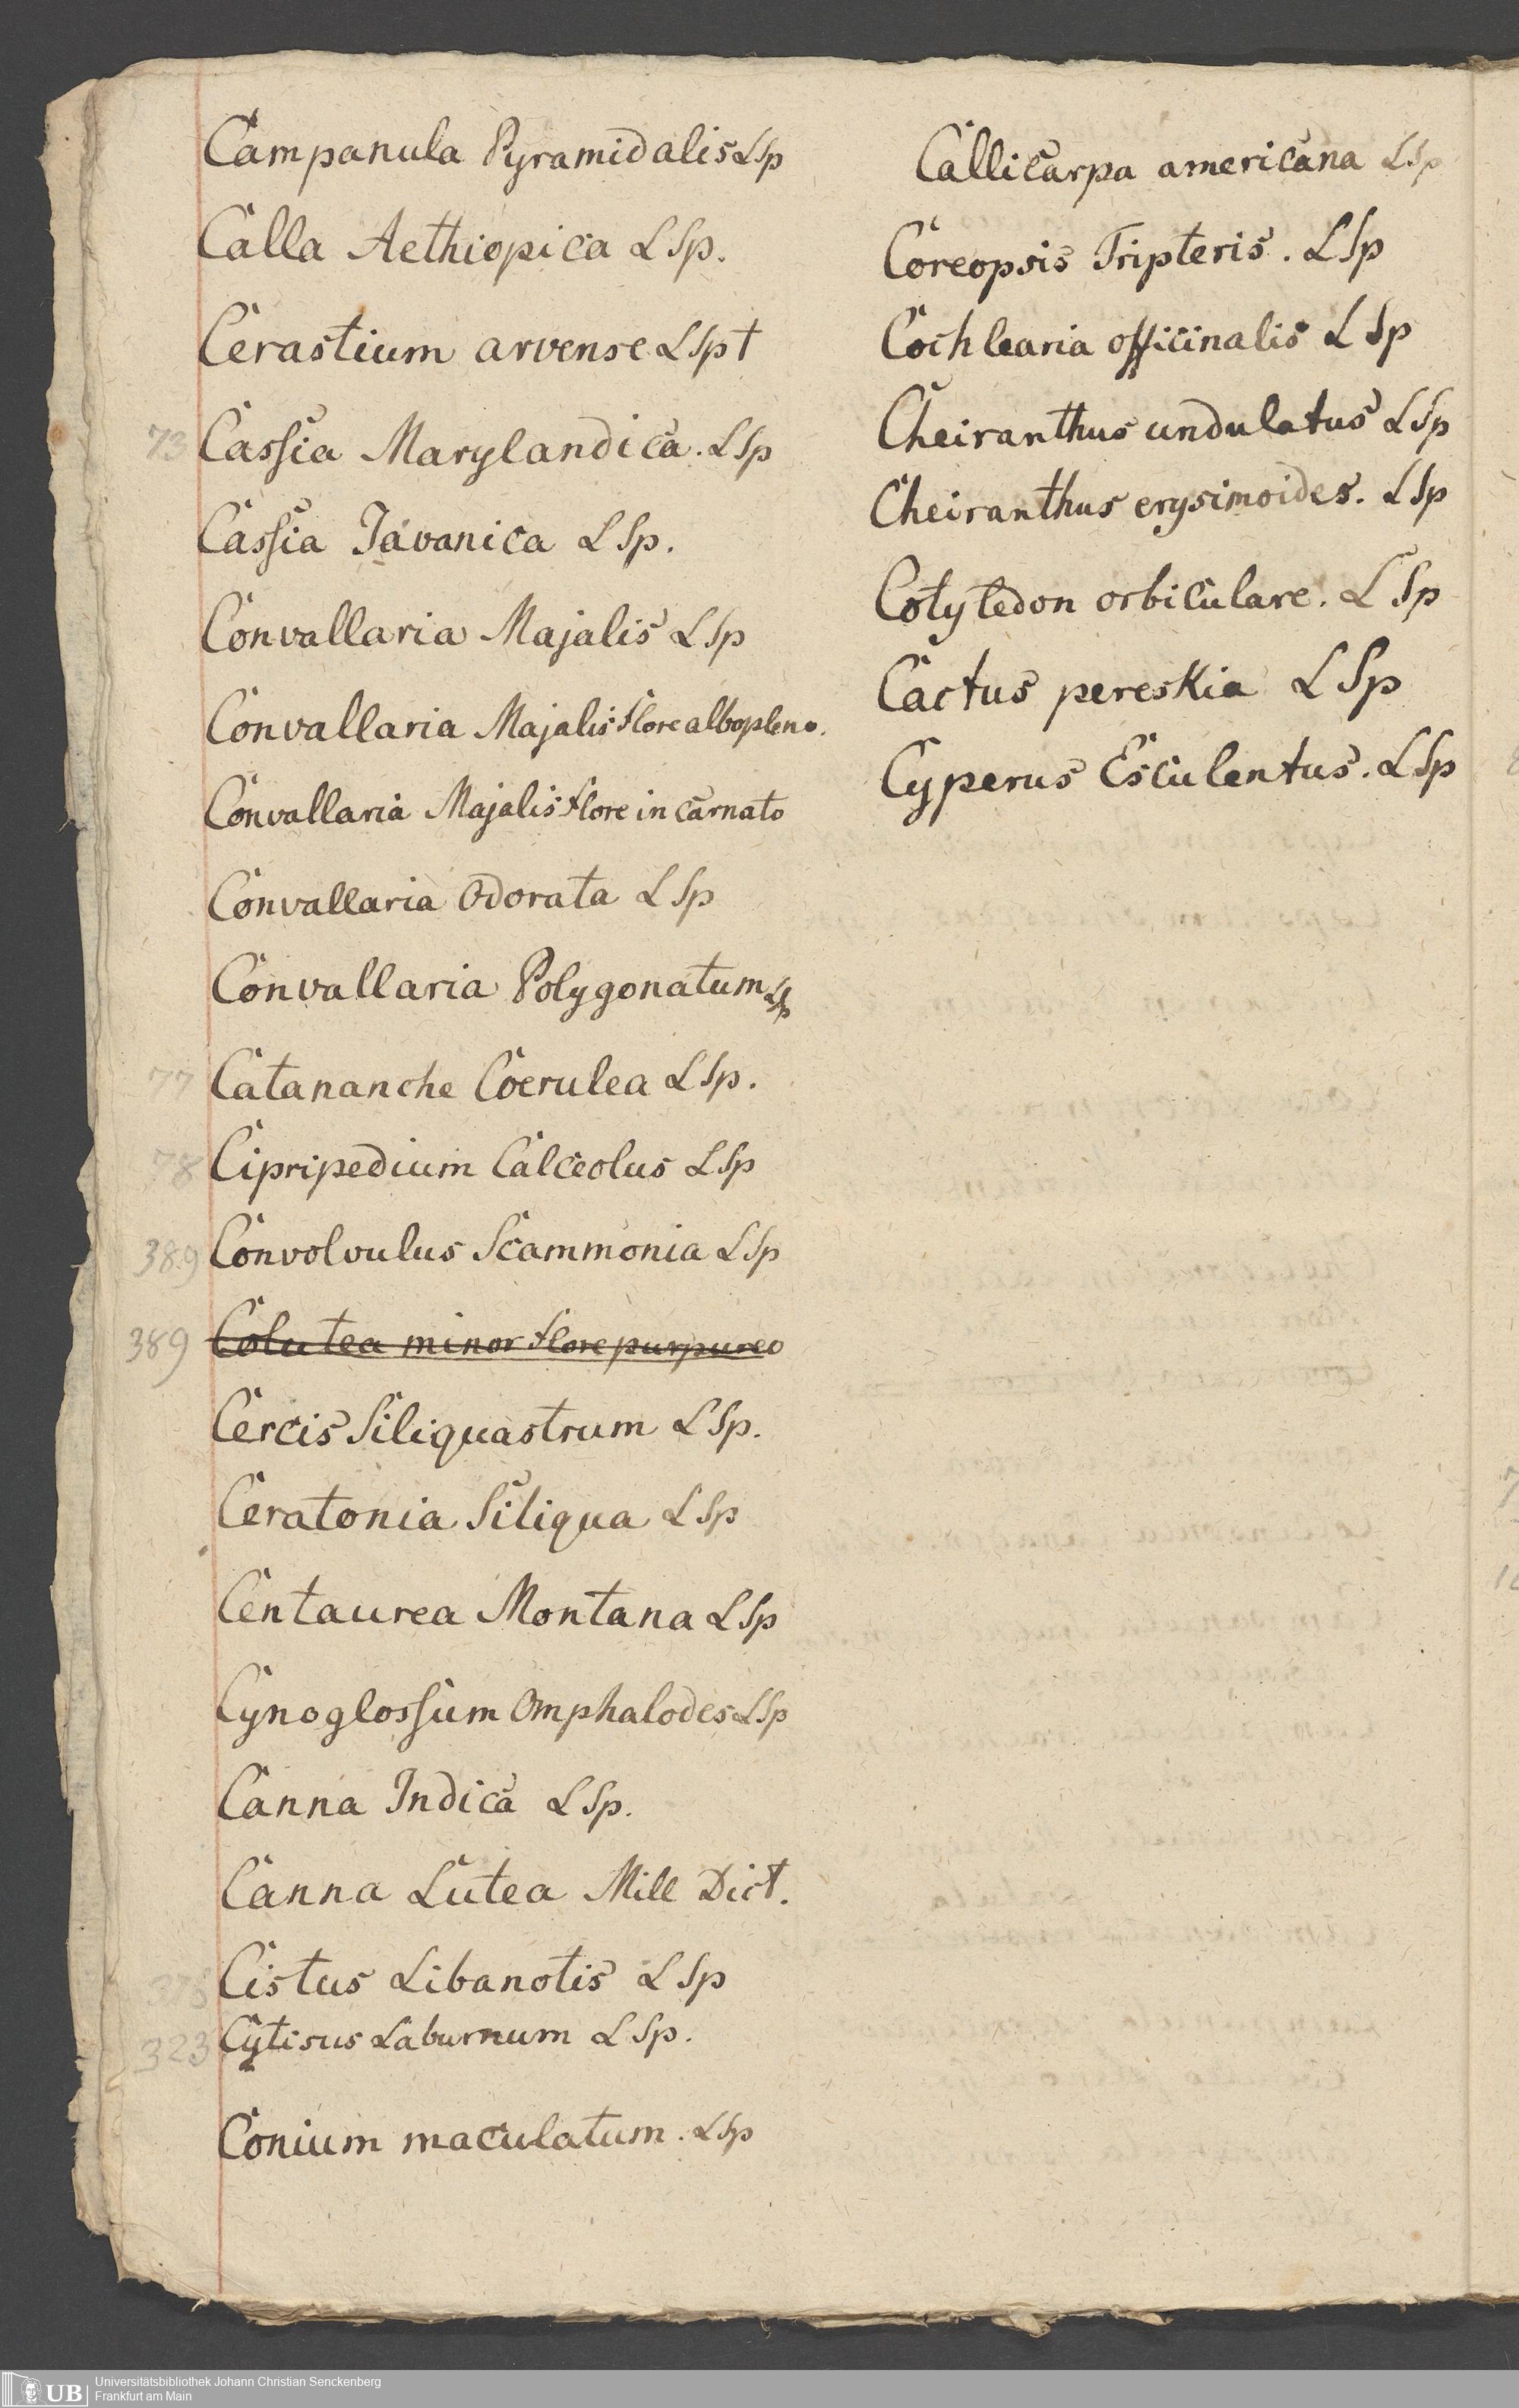 Campanula Pyramidalis LSp
Calla Aethiopica LSp.
Cerastium arvense LSpt
73 Cassia Marylandica. LSp
Cassia Javanica LSp.
Convallaria Majalis LSp
Convallaria Majalis flore albopleno.
Convallaria Majalis flore incarnato
Convallaria Odorata LSp
Convallaria Polygonatum LSp
77 Catananche Coerulea LSp.
78 Cipripedium Calceolus LSp
389 Convolvulus Scammonia LSp
389 Colutea minor flore purpureo
Cercis Siliquastrum LSp.
Ceratonia Siliqua LSp
Centaurea Montana LSp
Cynoglossum Omphalodes LSp
Canna Indica LSp.
Canna Lutea Mill Dict.
Cistus Libanotis LSp
323 Cytisus Laburnum LSp.
Conium maculatum. LSp
Callicarpa americana LSp
Coreopsis Tripteris. LSp
Cochlearia officinalis LSp
Cheiranthus undulatus LSp
Cheiranthus erysimoides. LSp
Cotyledon orbiculare. LSp
Cactus pereskia LSp
Cyperus Esculentus. LSp
UB
Universitätsbibliothek Johann Christian Senckenberg
Frankfurt am Main